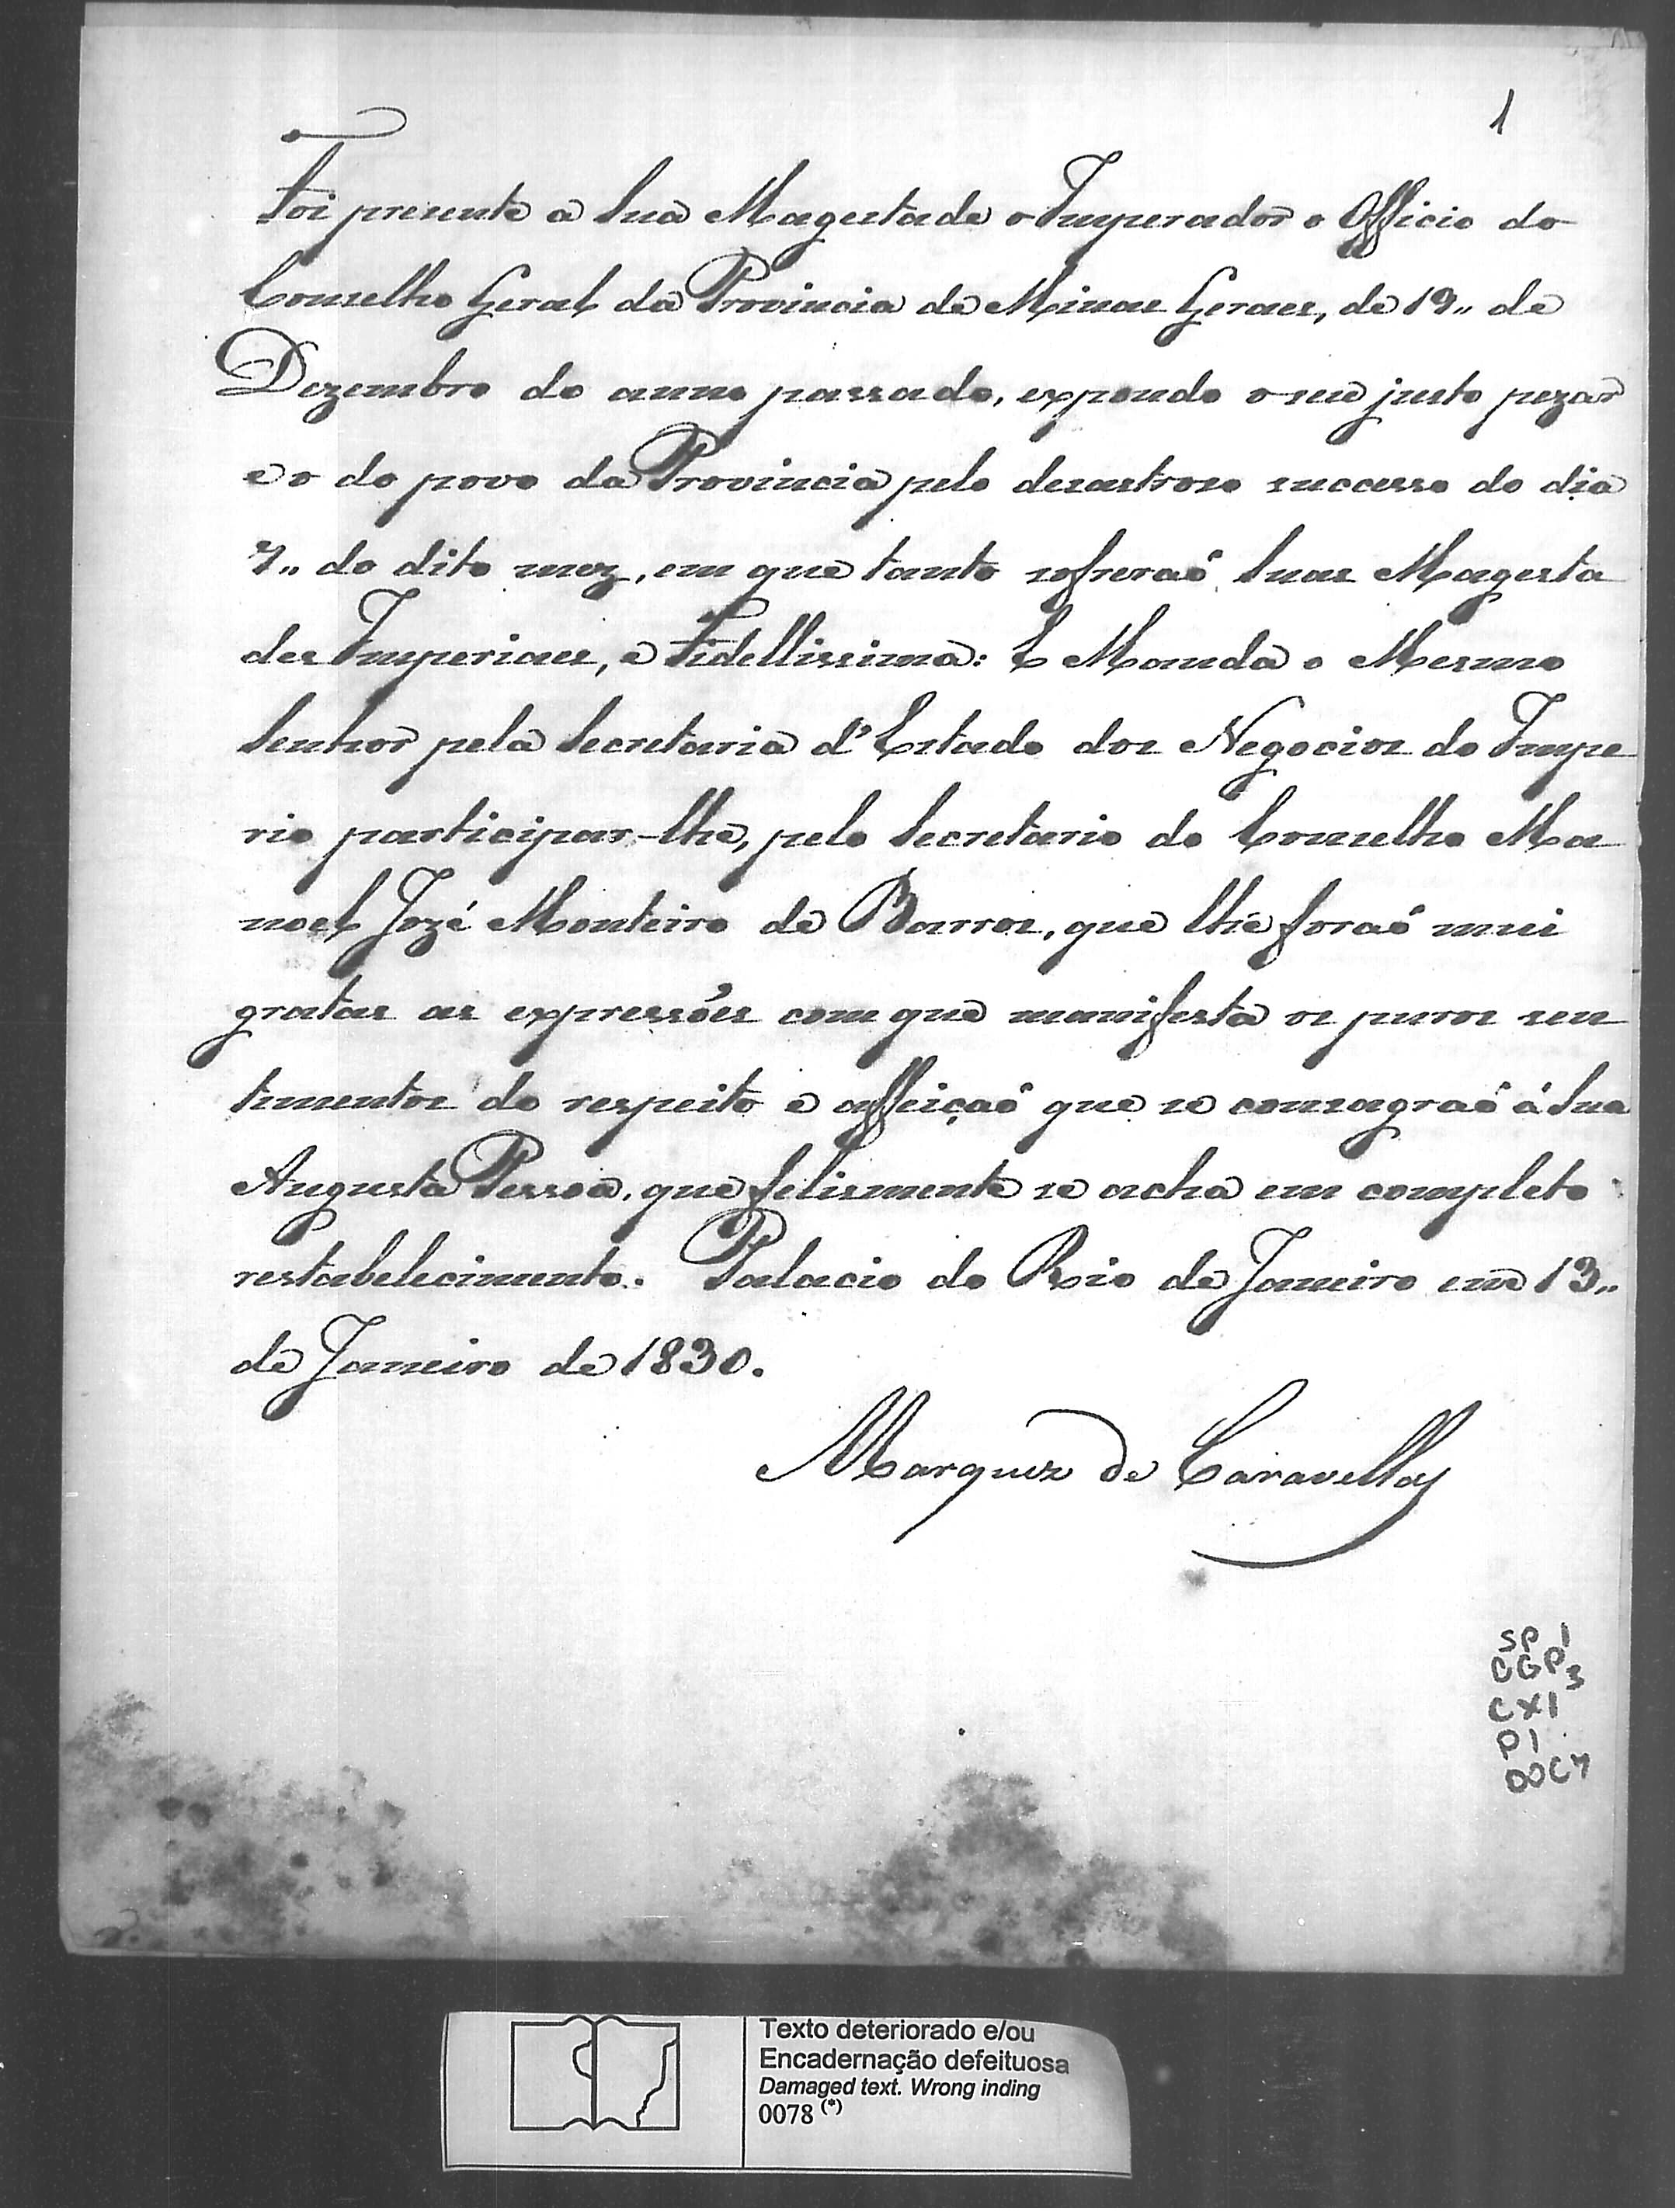 1
Foi presente a Sua Magestade o Imperador o Officio do
Conselho Geral da Provincia de Minas Geraes, de 19,, de
Dezembro do anno passado, expondo o seu justo pezar
e o do povo da Provincia pelo desastroso successo do dia
7,, do dito mez, em que tanto sofreraõ Suas Magesta
des Imperiaes, e Fidellissima: E Manda o Mesmo
Senhor pela Secretaria d'Estado dos Negocios do Impe
rio participar-lhe, pelo Secretario do Conselho Ma
noel Jozé Monteiro de Barros, que lhe foraõ mui
gratas as expressões com que manifesta os puros sen
timentos do respeito e affeiçaõ que se consagraõ á Sua
Augusta Pessoa, que felismente se acha em completo
restabelecimento. Palacio do Rio de Janeiro em 13,,
de Janeiro de 1830.
Marquez de Caravellas
SP 1
CGP 3
CX1
P1
DOC7
Texto deteriorado e/ou
Encadernação defeituosa
Damaged text. Wrong inding
0078 (*)